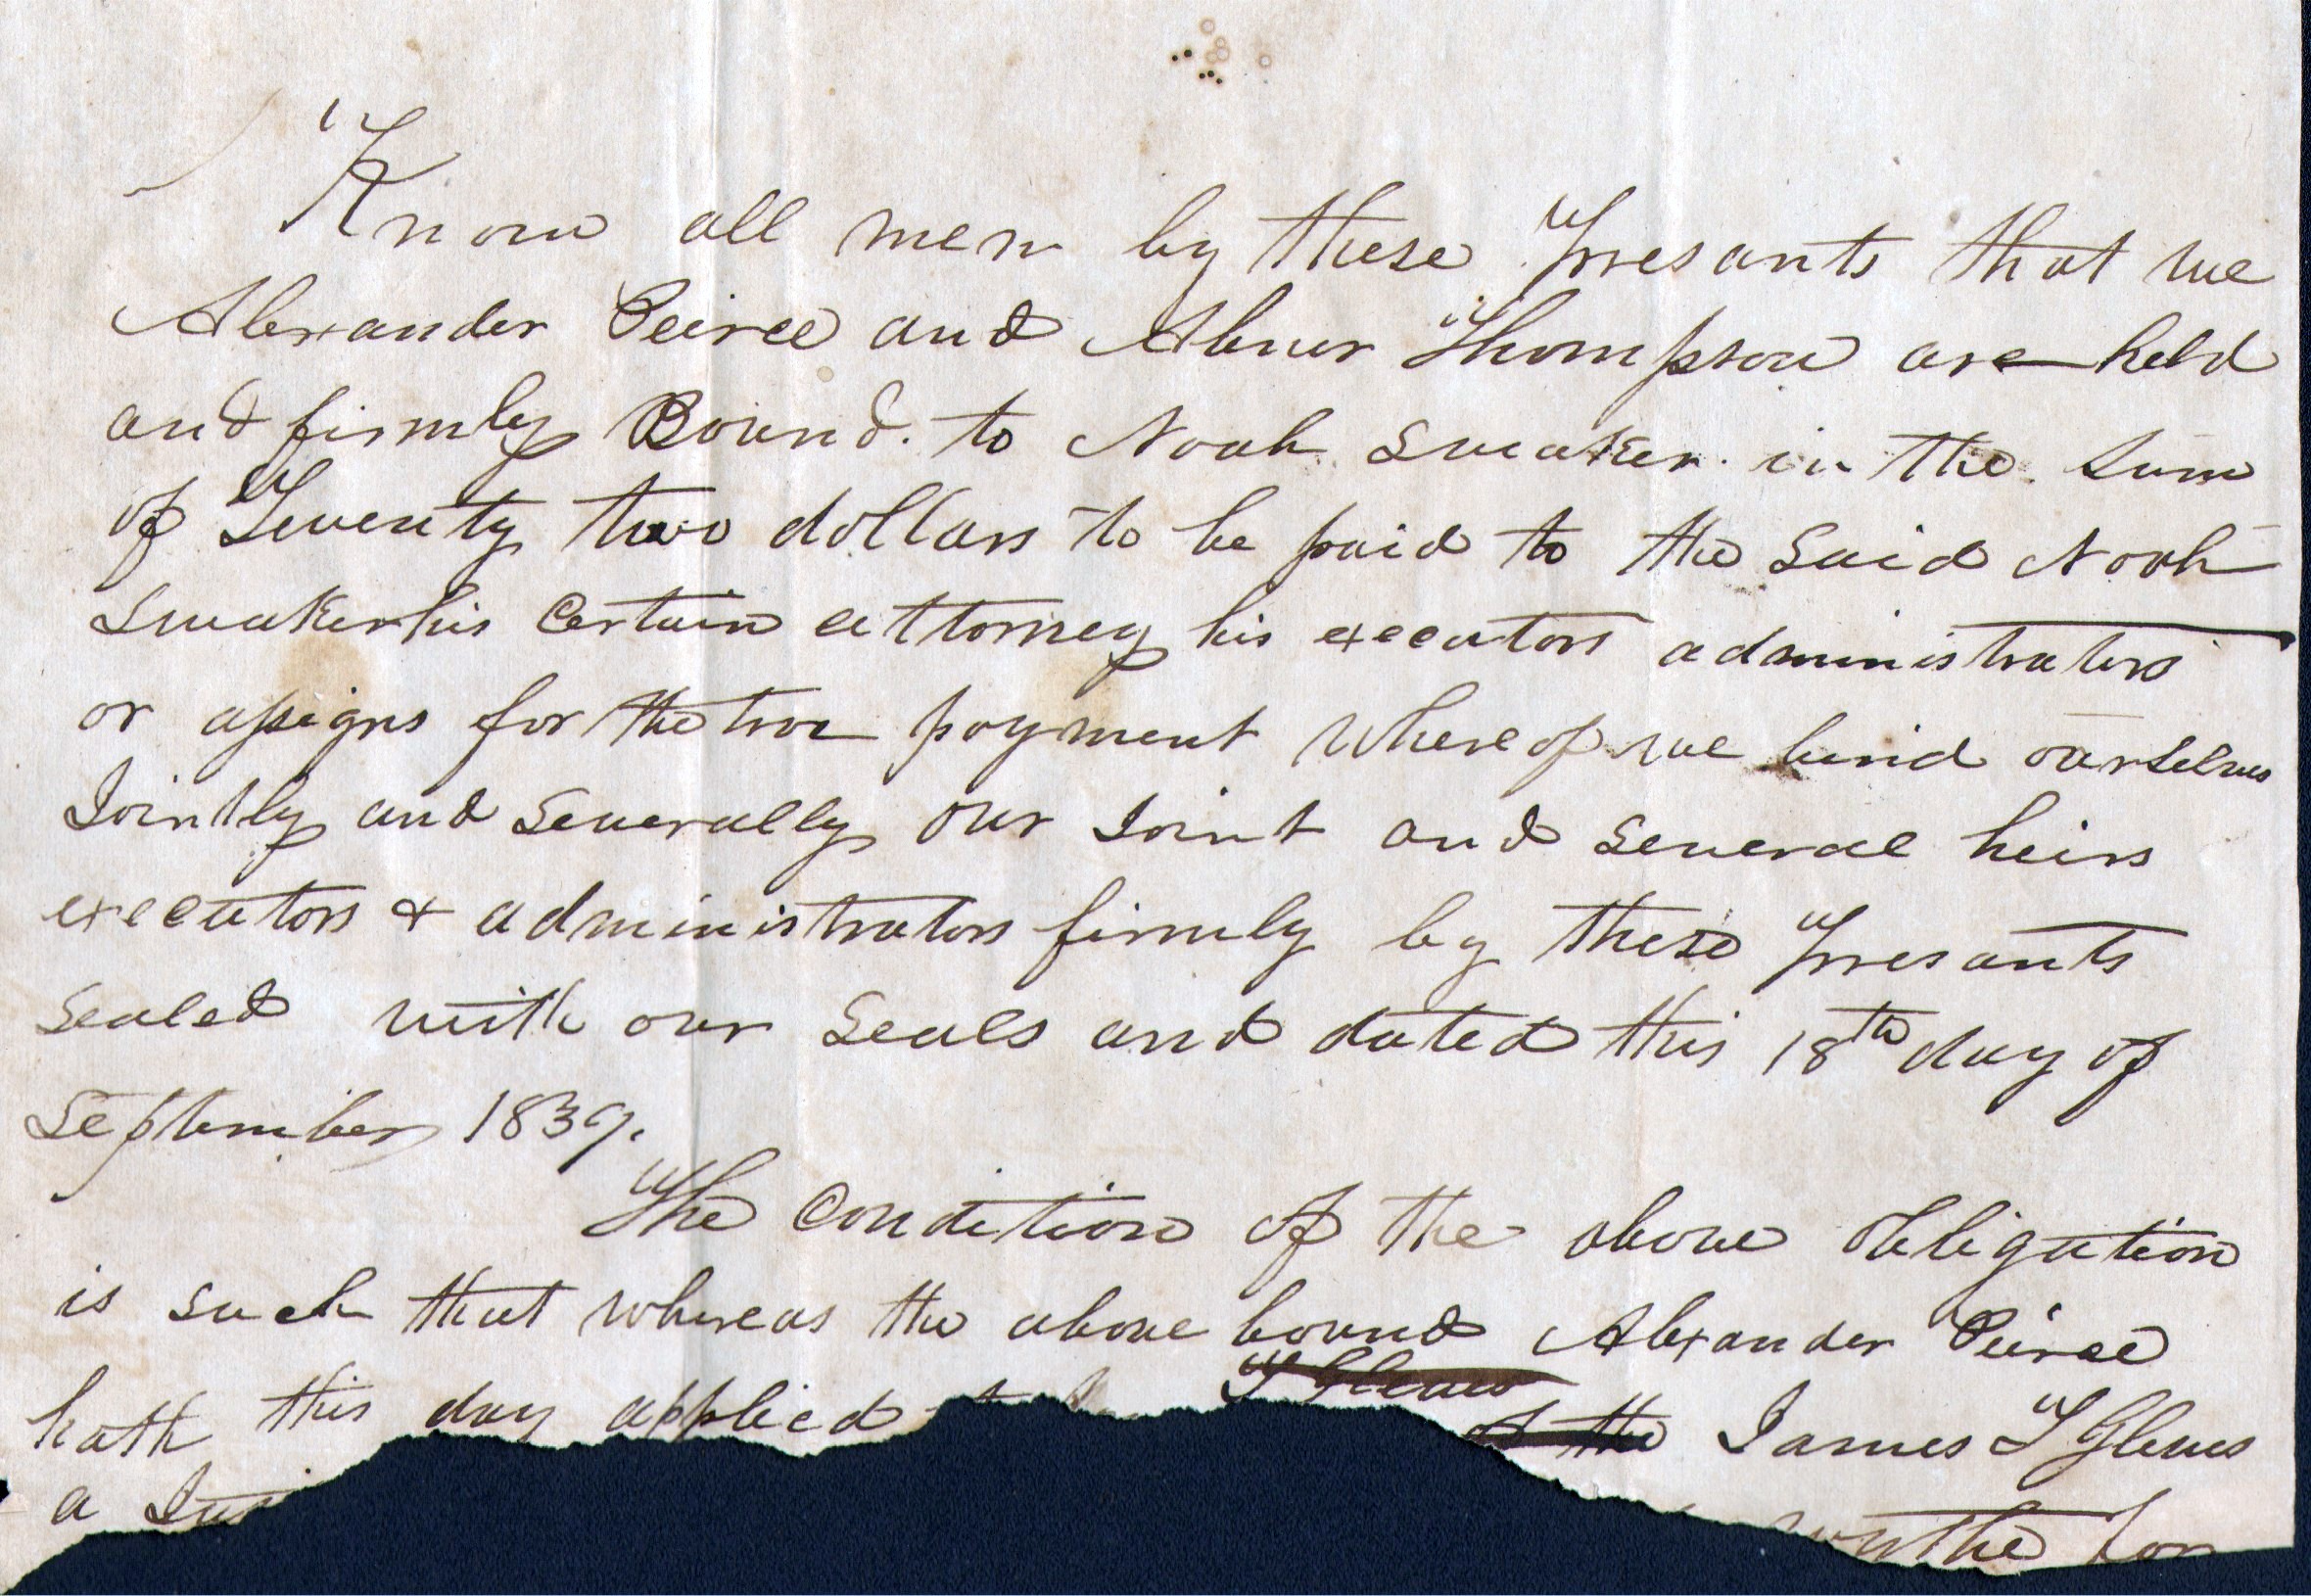 Know all men by these Presants that we
Alexander Peirce and Abner Thompson are held
and firmly Bound. to Noah Smoker in the Sum
of Seventy two dollars to be paid to the Said Noah
Smoker his Certain attorney his executors administrators
or assigns for the true payment where of we bind ourselves
Jointly and Severally our Joint and Several heirs
executors & administrators firmly by these Presants
Sealed with our Seals and dated this 18th day of
September 1839.
The Condition of the above obligation
is such that whereas the above bound Alexander Peirce
hath this day applied the James T Glenes
a for